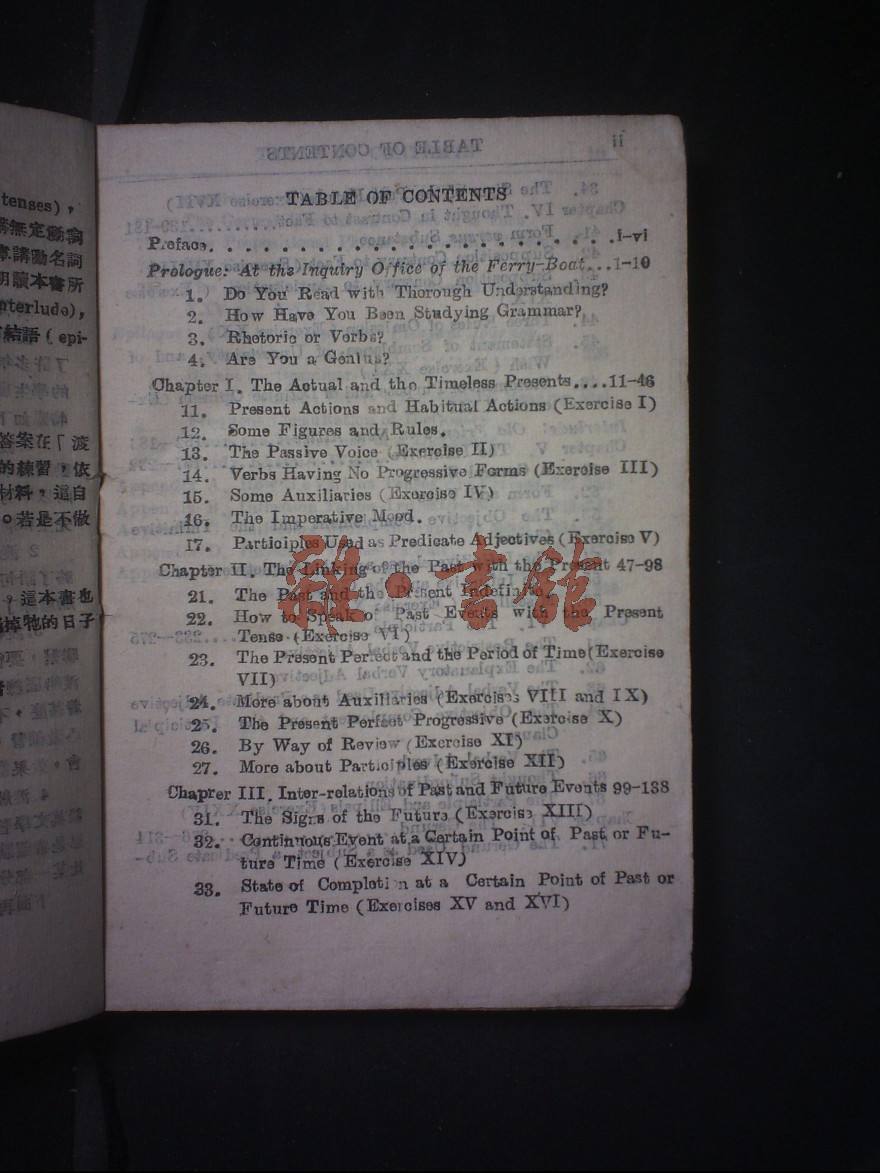 tenses),
講無定動詞
章講動名詞
明讀本書所
nterlude),
結語( epi-
答案在「渡
的練習,依
材料,這自
。若是不做
,這本書也
掉牠的日子
TABLE OF CONTENTS
Preface. . . . . . . . . . . . . . . . . .i-vi
Prologue: At the Inquiry Office of the Ferry-Boat...1-10
1. Do You Read with Thorough Understanding?
2. How Have You Been Studying Grammar?
3. Rhetoric or Verbs?
4. Are You a Genius?
Chapter I. The Actual and the Timeless Presents....11-46
11. Present Actions and Habitual Actions (Exercise I)
12. Some Figures and Rules.
13. The Passive Voice (Exercise II)
14. Verbs Having No Progressive Forms (Exercise III)
15. Some Auxiliaries (Exercise IV)
16. The Imperative Mood.
17. Participles Used as Predicate Adjectives (Exercise V)
Chapter II. The Linking of the Past with the Present 47-98
21. The Past and the Present Indefinite.
22. How to Speak of Past Events with the Present
Tense (Exercise VI)
23. The Present Perfect and the Period of Time (Exercise
VII)
24. More about Auxiliaries (Exercises VIII and IX)
25. The Present Perfect Progressive (Exercise X)
26. By Way of Review (Exercise XI)
27. More about Participles (Exercise XII)
Chapter III. Inter-relations of Past and Future Events 99-138
31. The Signs of the Future (Exercise XIII)
32. Continuous Event at a Certain Point of Past or Fu-
ture Time (Exercise XIV)
33. State of Completion at a Certain Point of Past or
Future Time (Exercises XV and XVI)
雜·書館